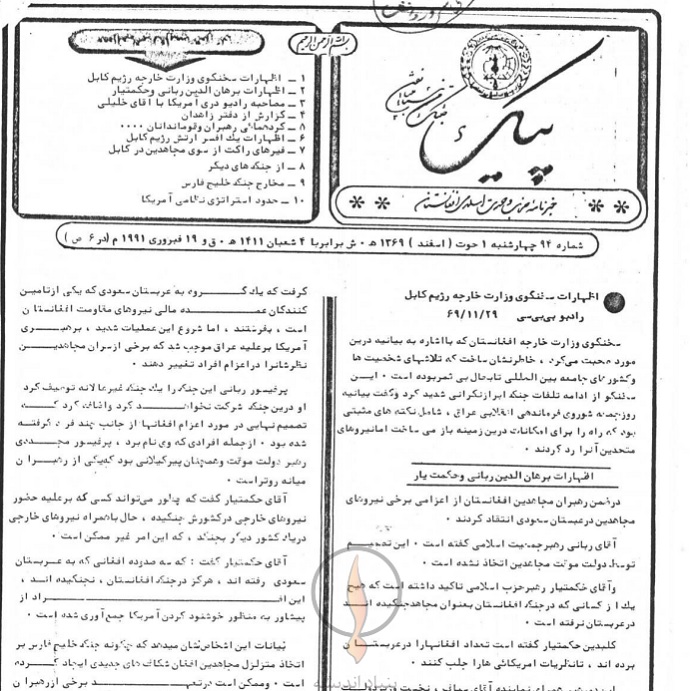 بسم الله الرحمن الرحیم
۱ ــ اظهارات سخنگوی وزارت خارجه رژیم کابل
۲ ــ اظهارات برهان الدین ربانی وحکمتیار
۳ ــ مصاحبه رادیو دری آمریکا با آقای خلیلی
۴ ــ گزارش از دفتر زاهدان
۵ ــ گردهمائی رهبران وقوماندانان ۰۰۰۰
۶ ــ اظهارات یک افسر ارتش رژیم کابل
۷ ــ فیرهای راکت از سوی مجاهدین در کابل
۸ ــ از جنگ های دیگر
۹ ــ مخارج جنگ خلیج فارس
۱۰ ــ حدود استراتژی نظامی آمریکا
پیک
خبرنامه حزب وحدت اسلامی افغانستان
شماره ۹۴ چهارشنبه ۱ حوت ( اسفند ) ۱۳۶۹ ه‍ ۰ ش برابربا ۴ شعبان ۱۴۱۱ ه‍ ۰ ق و ۱۹ فبروری ۱۹۹۱ م (در ۶ ص )
اظهارات سخنگوی وزارت خارجه رژیم کابل
رادیو بی‌بی‌سی ۶۹/۱۱/۲۹
سخنگوی وزارت خارجه افغانستان که بااشاره به بیانیه درین
مورد صحبت میکرد ، خاطرنشان ساخت که تلاشهای شخصیت ها
وکشورهای جامعه بین المللی تابحال بی ثمربوده است ۰ ایـــن
سخنگو از ادامه تلفات جنگ ابرازنگرانی شدید کرد وگفت بیانیه
روزجمعه شورای فرماندهی انقلابی عراق ، شامل نکته های مثبتی
بود که راه را برای امکانات درین زمینه باز می ساخت امانیروهای
متحدین آنرا رد کردند ۰
اظهارات برهان الدین ربانی وحکمت یار
درضمن رهبران مجاهدین افغانستان از اعزامی برخی نیروهای
مجاهدین درعربستان سعودی انتقاد کردند ۰
آقای ربانی رهبرجمعیت اسلامی گفته است ۰ این تصمیــــم
توسط دولت موقت مجاهدین اتخاذ نشده است ۰
وآقای حکمتیار رهبرحزب اسلامی تاکید داشته است که هیچ
یک از کسانی که درجنگ افغانستان بعنوان مجاهدجنگیده انــد
درعربستان نرفته است ۰
گلبدین حکمتیار گفته است تعداد افغانهارا درعربستـــــان
برده اند ، تانظریات امریکائی هارا جلب کنند ۰
گرفت که یک گــــروه به عربستان سعودی که یکی ازتامین
کنندگان عمـــــده مالی نیروهای مقاومت افغانستان
است ، بفرستند ، اما شروع این عملیات شدید ، برهبـــری
آمریکا برعلیه عراق موجب شد که برخی ازسران مجاهدیــــن
نظرشانرا دراعزام افراد تغییر دهند ۰
پرفیسور ربانی این جنگ را یک جنگ غیرعادلانه توصیف کرد
او درین جنگ شرکت نخواهـــــد کرد واضافه کرد کـــه
تصمیم نهایی در مورد اعزام افغانها از جانب چند فرد گرفتــه
شده بود ۰ ازجمله افرادی که وی نام برد ، پرفیسور مجـــددی
رهبر دولت موقت وهمچنان پیرگیلانی بود که‌یکی از رهبـــران
میانه روتراست ۰
آقای حکمتیار گفت که چطور می‌تواند کسی که برعلیه حضور
نیروهای خارجی درکشورش جنگیده ، حال باهمراه نیروهای خارجی
دریک کشور دیگر بجنگد ، که این امر غیر ممکن است ۰
آقای حکمتیار گفت : که سه صدوده افغانی که به عـــربستان
سعودی رفته اند ، هرگز درجنگ افغانستان ، نجنگیده انــد ،
این افـــــراد از
پیشاور به منظور خوشنود کردن آمریکا جمع آوری شده است ۰
بیانات این اشخاص‌نشان میدهد که چگونه جنگ خلیج فارس بر
اتخاذ متزلزل مجاهدین افغان شکاف های جدیدی ایجاد کــــرده
است ۰ وممکن است درتعهـــد برخی ازرهبران
بنیاد اندیشه